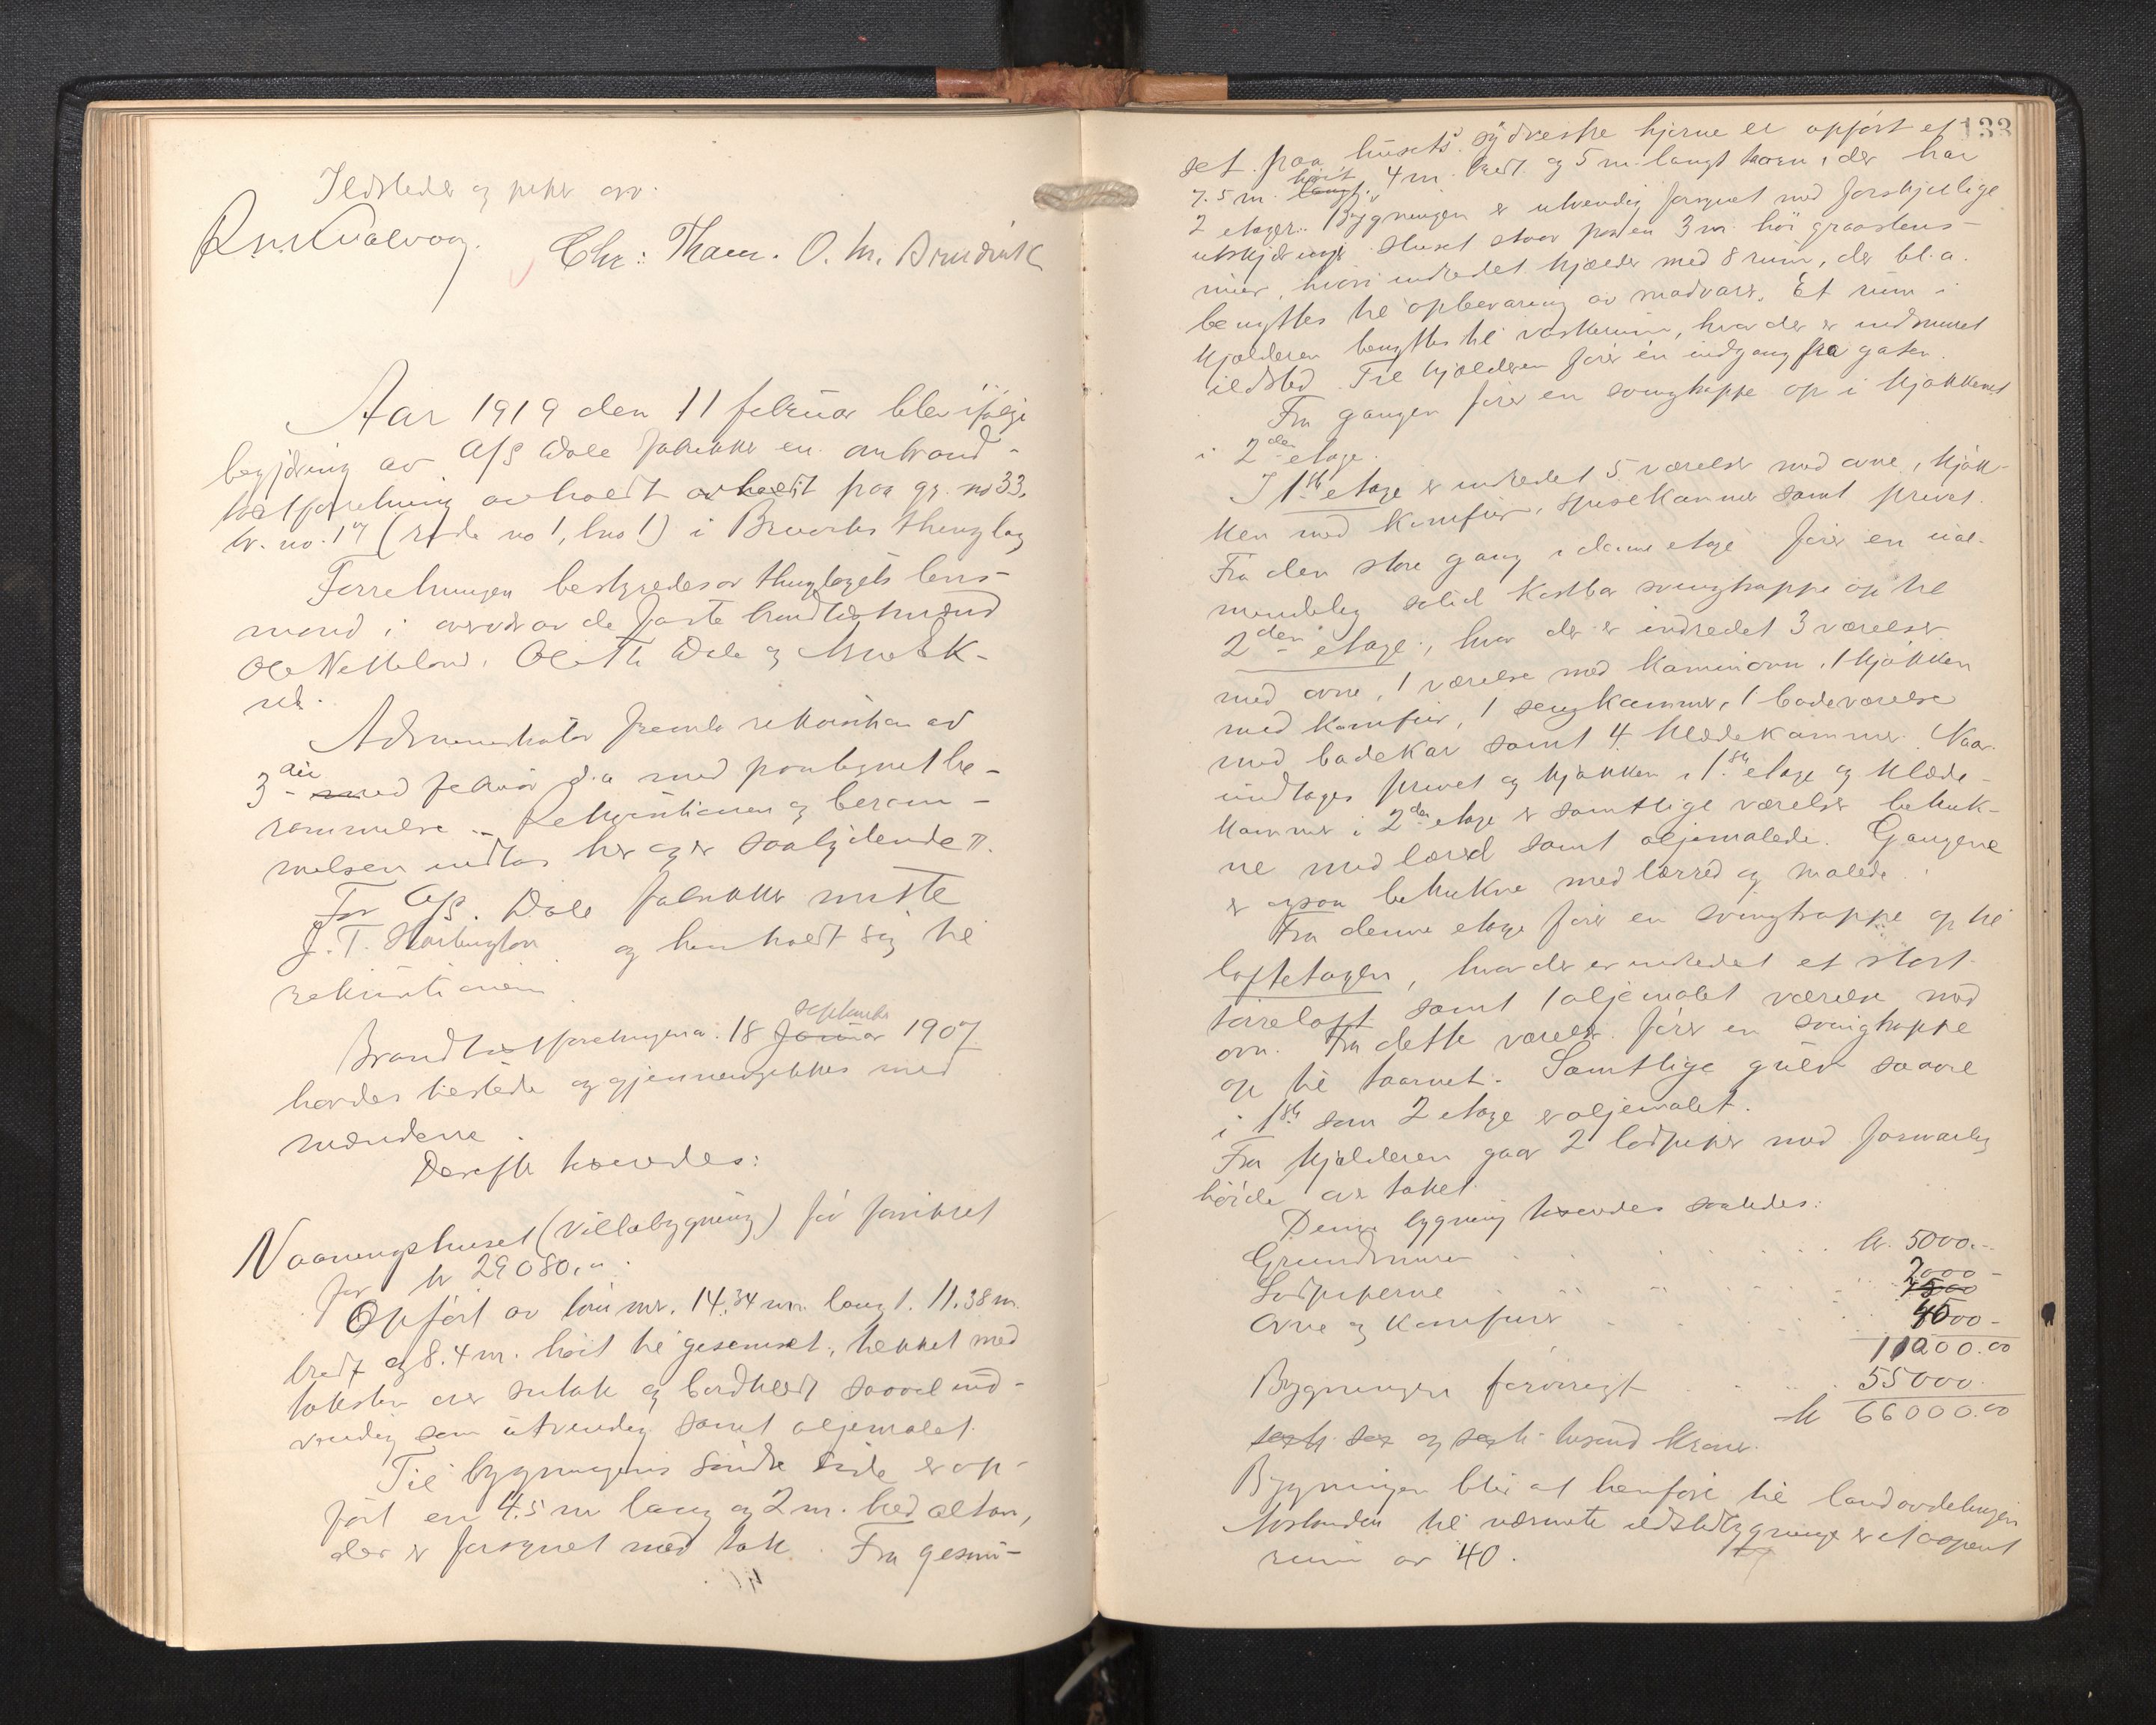 Ildsteder og piper
Chr: Tham. O. M.
Aar 1919 den 11 februar blev ifølge
begjæring av A/S Dale fabrikker en ombrand-
takstforretning avholdt avholdt paa gr. no 33,
br. no. 17 ( no 1, lno 1) i Bruvik thinglag
Forretningen bestyredes av thinglagets lens-
mand i overvær av de faste brandtakstmænd
Ole Netteland, Ole Th Dale og
Administrator fremla rekvisition av
3die med februar d.a med paategnet be-
rammelse. Rekvisitionen og beram-
melsen indtas her og er saalydende:
For A/S. Dale fabrikker møtte
J. T. og henholdt sig til
rekvisitionen
Brandtakstforretningen a. 18 Januar september 1907
havdes tilstede og gjennemgikkes med
mændene.
Derefter taxerdes:
Vaaningshuset (Villabygning) før forsikret
for kr 29080.
Opført av tømmer. 14.34 m. langt. 11.38 m.
bredt og 8.4 m. høit til gesemset, tækket med
taksten over sutak og bordklædt saavel ind-
vendig som utvendig samt oljemalet.
Til bygningens søndre side er op-
ført en 4.5 m lang og 2 m. bred altan,
der er forsynet med tak. Fra gesim-
133
set paa husets sydvestre hjørne er opført et
7.5 m. langt høit 4 m. bredt og 5 m. langt taarn, der har
2 etager. Bygningen er utvendig forsynet med forskjellige
utskjæringer. Huset staar paa en 3 m. høi graastens-
mur, hvori indredet kjælder med 8 rum, der bl. a.
benyttes til opbevaring av madvarer. Et rum i
kjælderen benyttes til vaskerum, hvor der er indmuret
ildsted. Til kjælderen fører én indgang fra gaten.
Fra gangen fører en svingtrappe op i kjøkkenet
i 2den etage.
I 1ste etage er indredet 5 værelser med ovne, kjøk-
ken med komfur, spisekammer samt privet.
Fra den store gang i denne etage fører en ual-
mindelig solid kostbar svingtrappe op til
2den etage, hvor der er indredet 3 værelser
med ovne, 1 værelse med kaminovn, 1 kjøkken
med komfur, 1 sengkammer, 1 badeværelse
med badekar samt 4 klædekammer. Naar
undtages privet og kjøkken i 1ste etage og klæde-
kammer i 2den etage er samtlige værelser betruk-
ne med lærred samt oljemalede. Gangene
er ogsaa betrukne med lærred og malede.
Fra denne etage fører en svingtrappe op til
loftetagen, hvor der er indredet et stort
tørreloft samt 1 oljemalet værelse med
ovn. Fra dette værelse fører en svingtrappe
op til taarnet. Samtlige gulv saavel
i 1ste som 2 etage er oljemalet.
Fra kjælderen gaar 2 lodpiper med forsvarlig
høide over taket.
Denne bygning taxerdes saaledes:
Grundmuren kr. 5000.-
Lodpiperne 2000 - 1500
Ovne og komfurer 4000 -
11000.00
Bygningen forøvrigt 55000
kr 66000.00
seksti seks og seksti tusind kroner.
Bygningen blir at henføre til landavdelingen
Avstanden til nærmeste ildstedbygninger er et aapent
rum av 40.